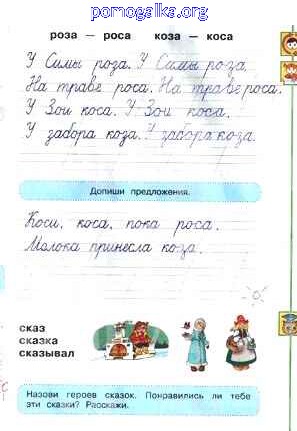 pomogalka.org
роза — роса коза — коса
У Симы роза. У Симы роза.
На траве роса. На траве роса.
У Зои коса. У Зои коса.
У забора коза. У забора коза.
Допиши предложения.
Коси, коса, пока роса.
Молока принесла коза.
сказ
сказка
сказывал
Назови героев сказок. Понравились ли тебе
эти сказки? Расскажи.